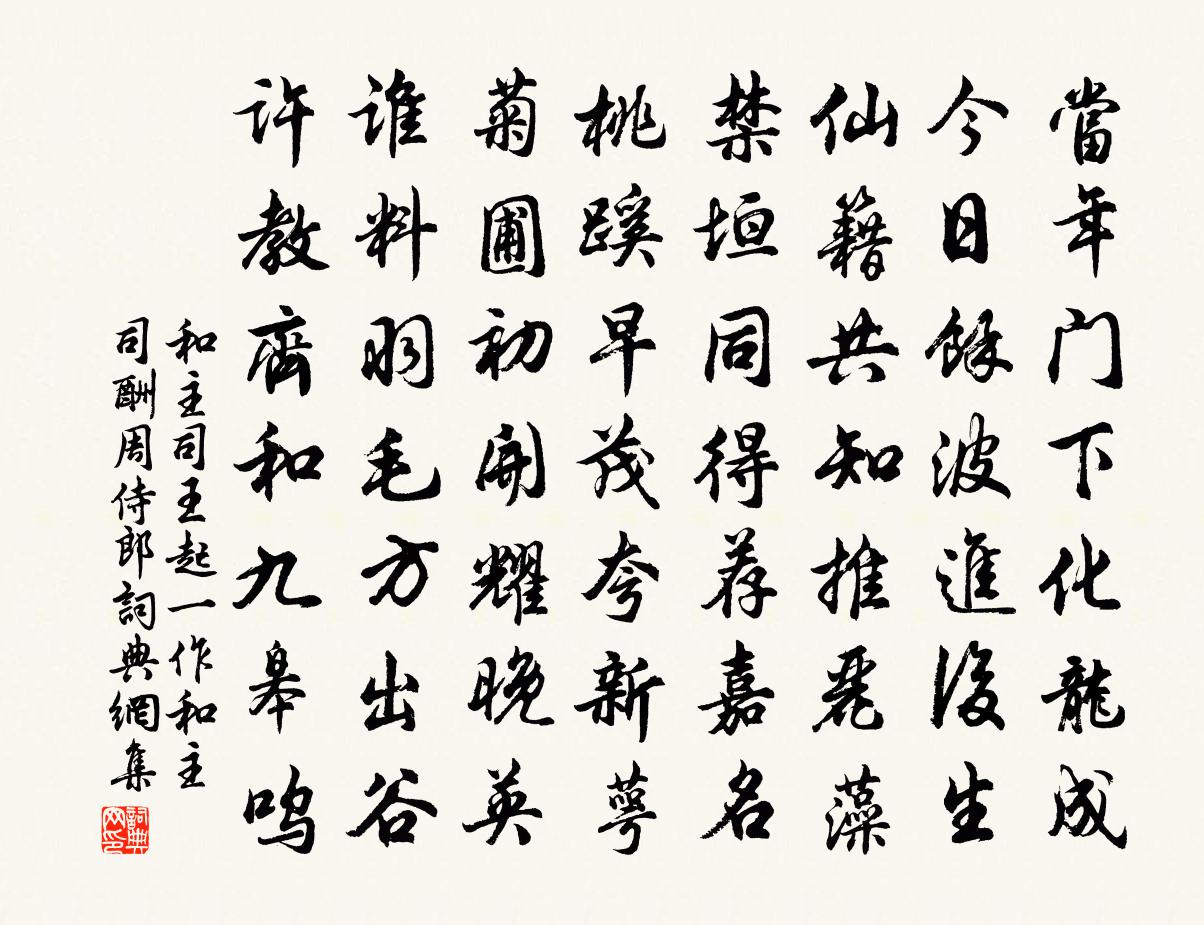 當年门下化龍成
今日餘波進後生
仙籍共知推麗藻
禁垣同得荐嘉名
桃蹊早茂夸新萼
菊圃初開耀晚英
谁料羽毛方出谷
许教齊和九皋鸣
和主司王起一作和主
司酬周侍郎詞典網集
詞典网印